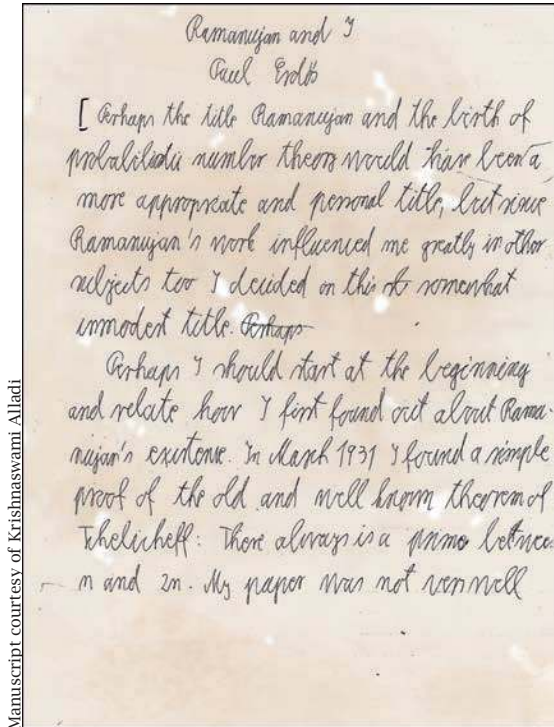 Ramanujan and I
Paul Erdős
[ Perhaps the title Ramanujan and the birth of
probabilistic number theory would have been a
more appropriate and personal title, but since
Ramanujan's work influenced me greatly in other
subjects too I decided on this somewhat
immodest title. Perhaps
Perhaps I should start at the beginning
and relate how I first found out about Rama-
nujan's existence. In March 1931 I found a simple
proof of the old and well known theorem of
Tchebicheff: There always is a prime between
n and 2n. My paper was not very well
Manuscript courtesy of Krishnaswami Alladi